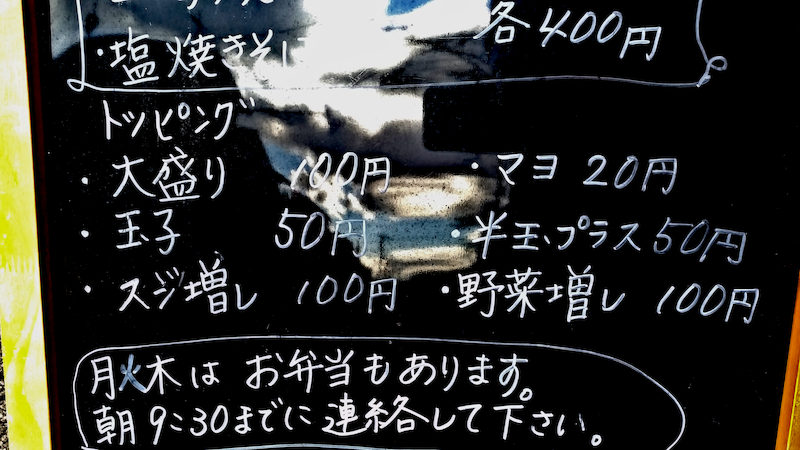 ・塩焼きそば 各400円
トッピング
・大盛り 100円 ・マヨ 20円
・玉子 50円 ・半玉プラス 50円
・スジ増し 100円 ・野菜増し 100円
月火木は お弁当もあります。
朝9:30までに連絡して下さい。